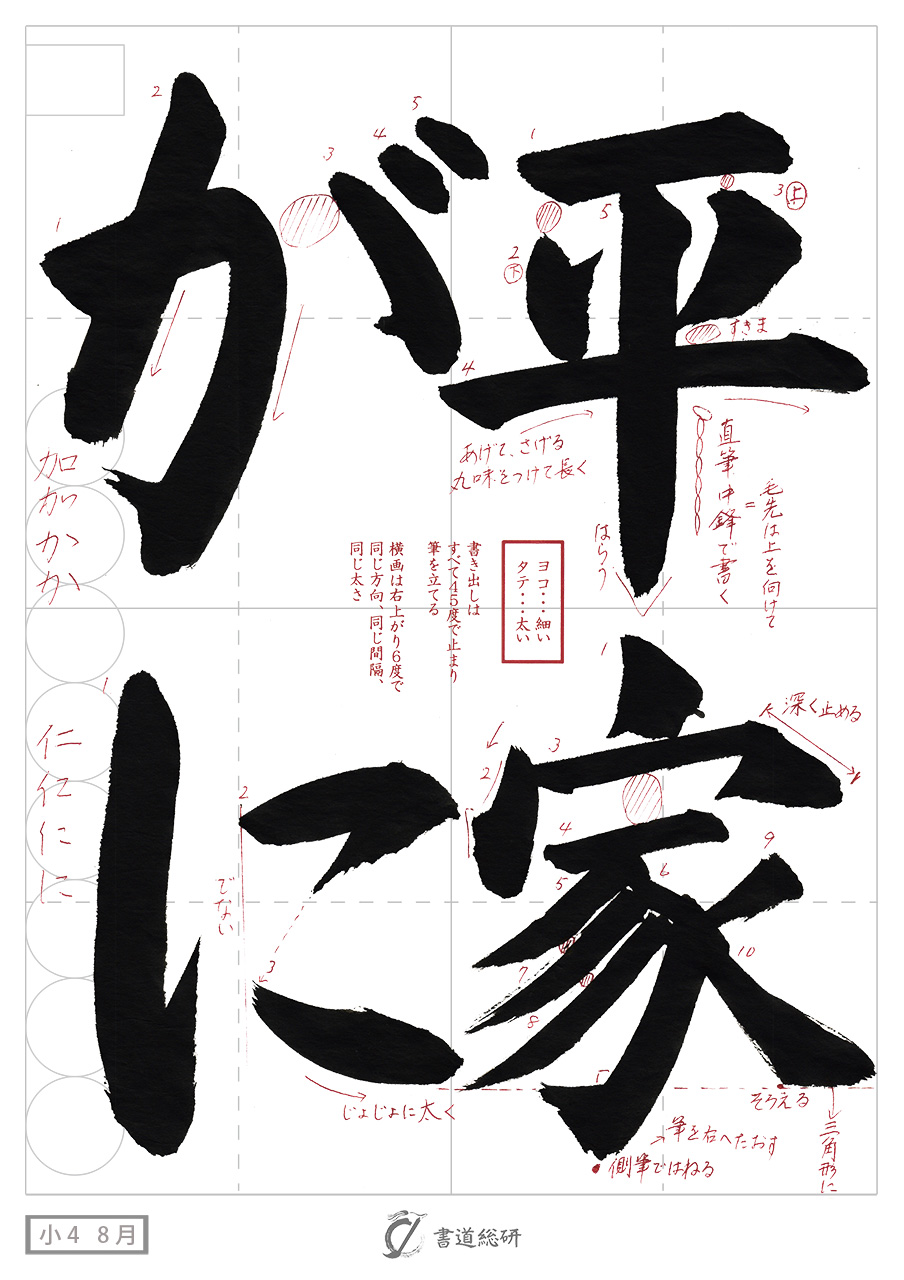 平家
がに
1
2
下
3
上
4
5
すきま
あげて、さげる
丸味をつけて長く
直筆中鋒で書く
=
毛先は上を向けて
はらう
1
2
3
4
5
ヨコ・・・細い
タテ・・・太い
書き出しは
すべて45度で止まり
筆を立てる
横画は右上がり6度で
同じ方向、同じ間隔、
同じ太さ
加
か
か
1
2
3
4
5
6
7
8
9
10
深く止める
そろえる
三角形に
筆を右へたおす
側筆ではねる
1
2
3
でない
じょじょに太く
仁
仁
に
に
小4 8月
書道総研